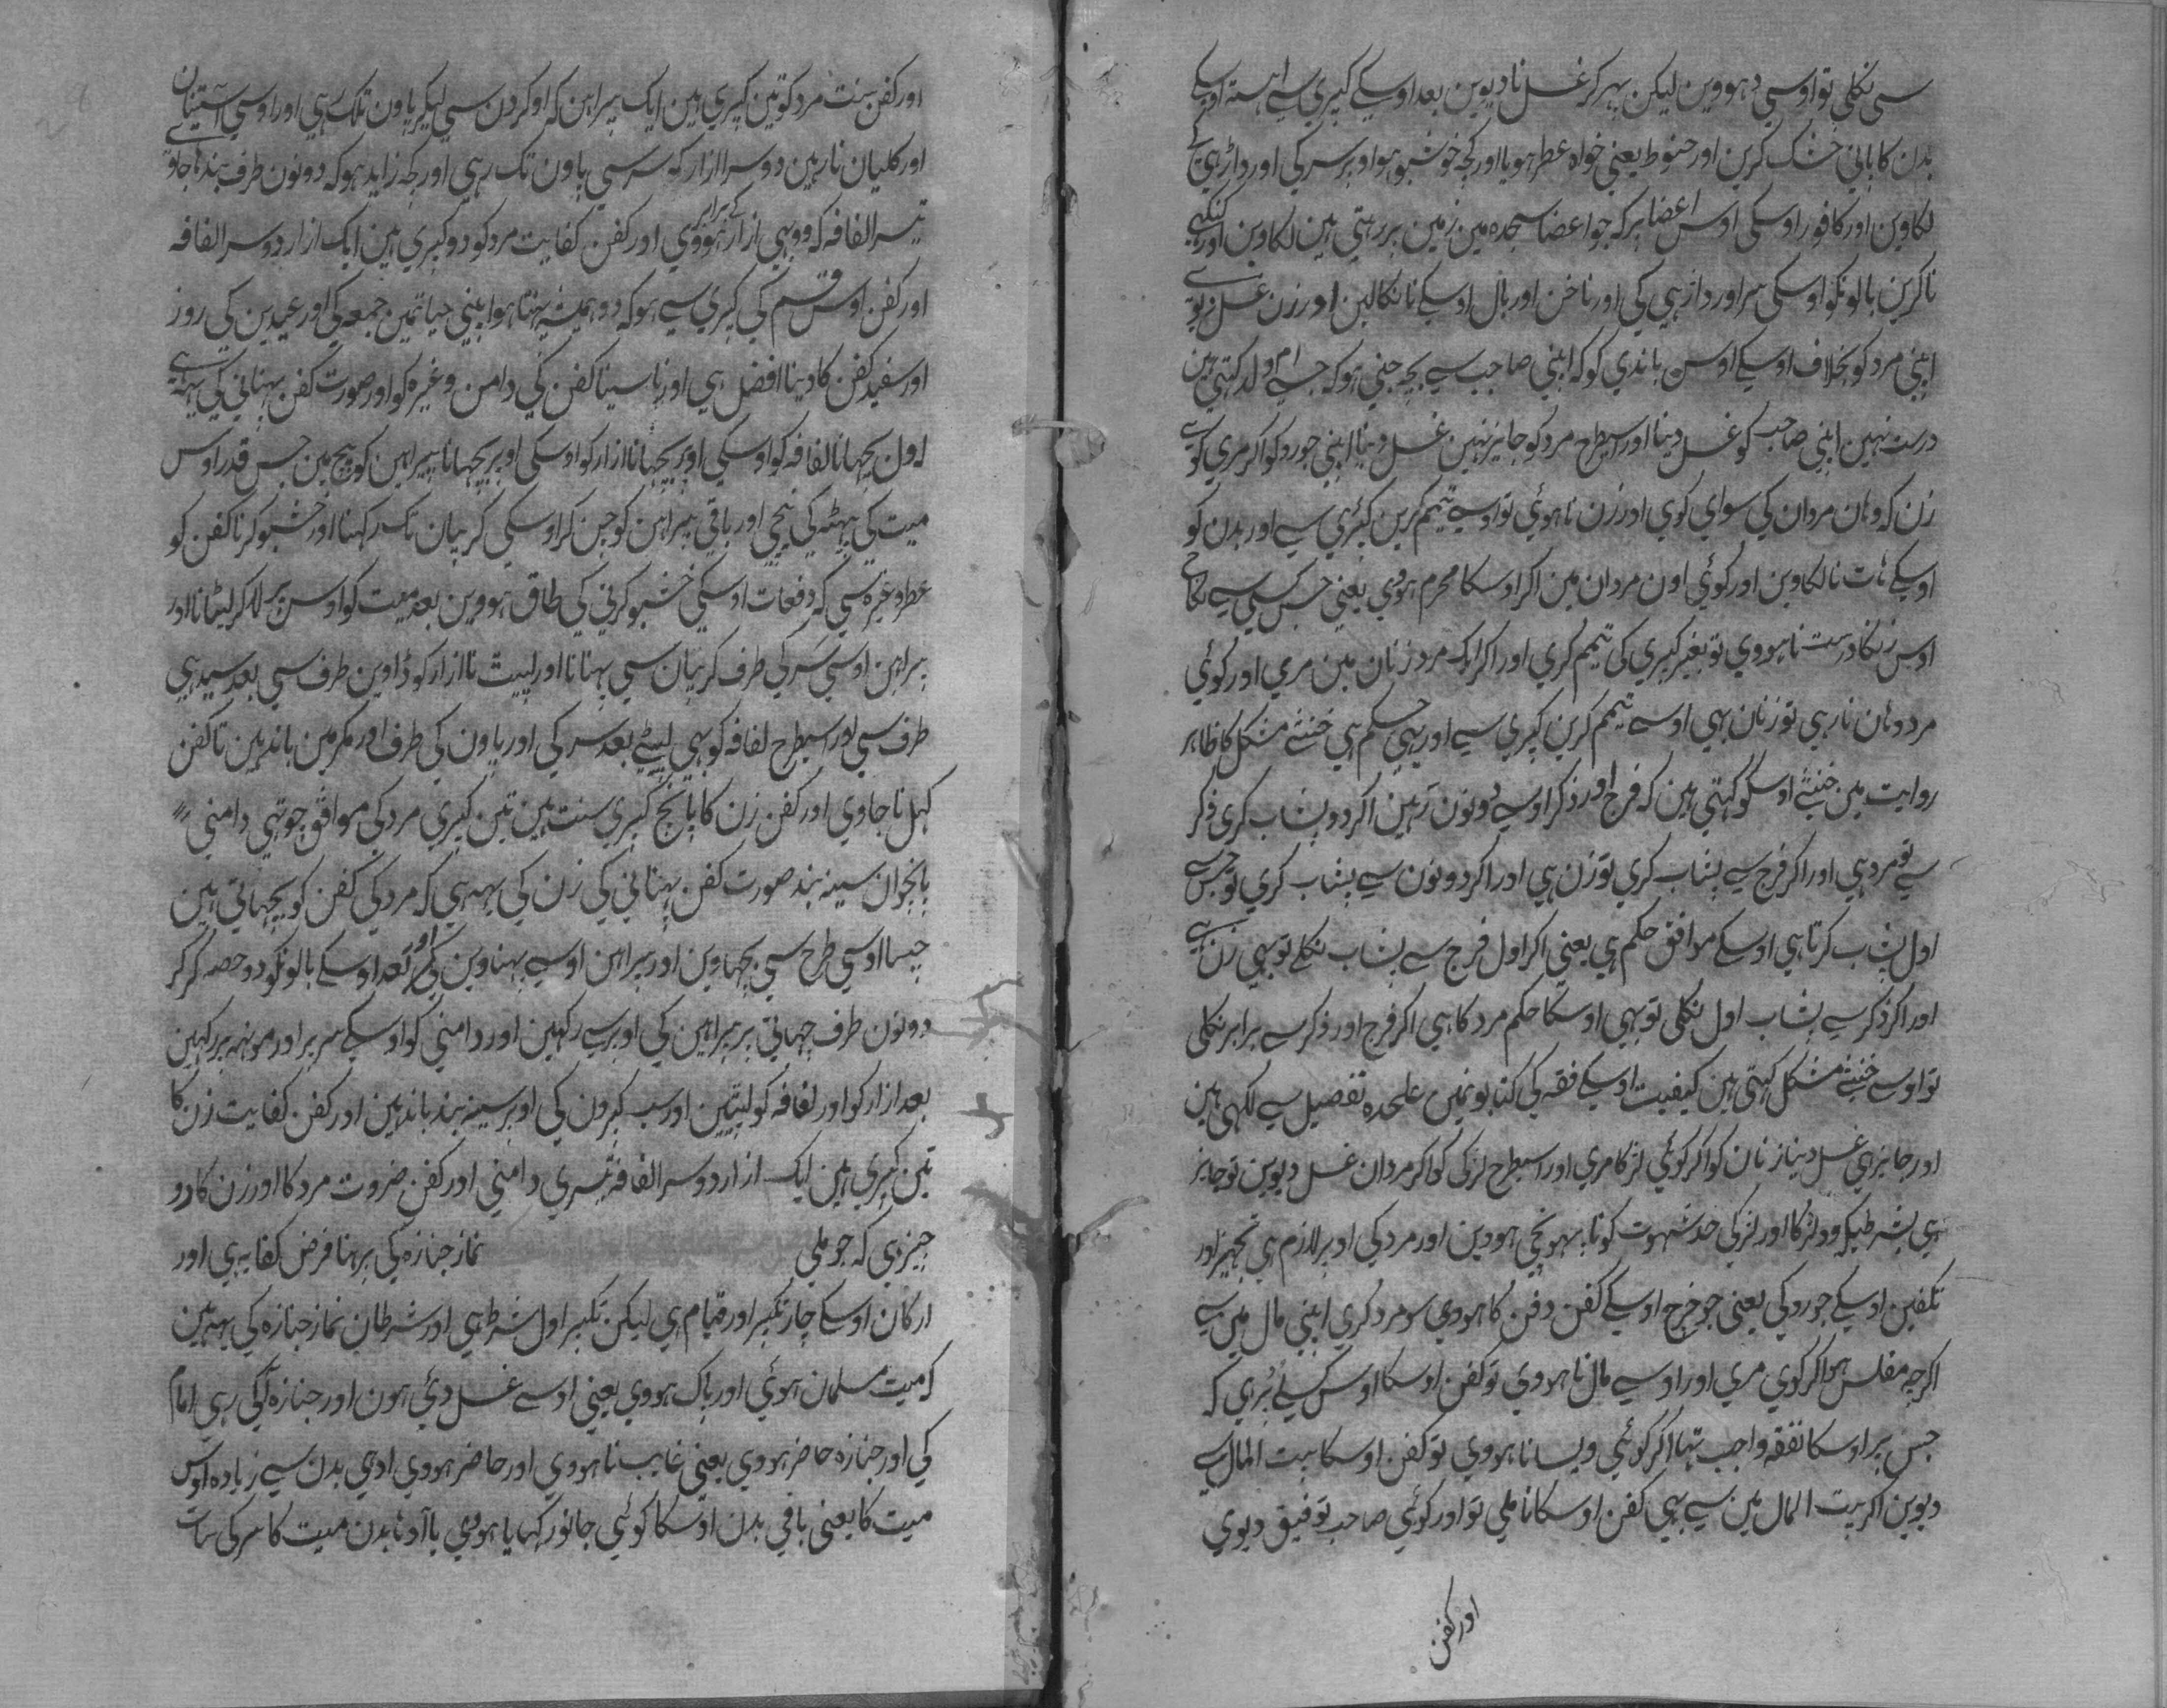 سی نکلی تو اوسی دہووین لیکن پہر کر غسل نا دیوین بعد اوسکے کپری سے اہستہ اوسکے
بدن کا پانی خشک کرین اور حنوط یعنی خواہ عطر ہو یا اور کچہ خوشبو ہو اوپر سر کی اور داڑہی کے
لکاوین اور کافور اوسکی اوس اعضا پر کہ جو اعضا سجدہ مین زمین پر رہتی ہین لکاوین اور کنکہی
نا کرین بالونکو اوسکی سر اور داڑہی کی اور ناخن اور بال اوسکے نا نکالین اور زن غسل دیوے
اپنی مرد کو بخلاف اوسکے اوس باندی کو کہ اپنی صاحب سے بچہ جنی ہو کہ جسے ام ولد کہتی ہین
درست نہین اپنی صاحب کو غسل دینا اور اسیطرح مرد کو جایز نہین غسل دینا اپنی جورو کو اکر مری کوئے
زن کہ وہان مردان کی سوای کوی اور زن نا ہوئی تو اوسے تیمم کرین کپڑی سے اور بدن کو
اوسکے ہات نا لکاوین اور کوئی اون مردان مین اکر اوسکا محرم ہووی یعنی جس کسی سے نکاح
اوس زنکا درست نا ہووی تو بغیر کپری کی تیمم کری اور اکر ایک مرد زنان مین مری اور کوئی
مرد وہان نا رہی تو زنان بہی اوسے تیمم کرین کپری سے اور یہی حکم ہی خنثے مشکل کا ظاہر
روایت مین خنثے اوسکو کہتی ہین کہ فرج اور ذکر اوسے دونون رہین اکر وو پشاب کری ذکر
سے تو مرد ہی اور اکر فرج سے پشاب کری تو زن ہی اور اکر دونون سے پشاب کری تو جس سے
اول پشاب کرتا ہی اوسکے موافق حکم ہی یعنی اکر اول فرج سے پشاب نکلے تو بہی زن ہے
اور اکر ذکر سے پشاب اول نکلی تو بہی اوسکا حکم مرد کا ہی اکر فرج اور ذکر سے برابر نکلی
تو اوسے خنثے مشکل کہتی ہین کیفیت اوسکے فقہ کی کتابونمین علحدہ تفصیل سے لکہی ہین
اور جایز ہی غسل دینا زنان کو اکر کوئی لڑکا مری اور اسیطرح لڑکی کو اکر مردان غسل دیوین تو جایز
ہی بشرطیکہ وو لڑکا اور لڑکی حد شہوت کو نا پہونچی ہووین اور مرد کی اوپر لازم ہی تجہیز اور
تکفین اوسکے جورو کی یعنی جو خرج اوسکے کفن دفن کا ہووی سو مرد کری اپنی مال مین سے
اکرچہ مفلس ہو اکر کوی مری اور اوسے مال نا ہووی تو کفن اوسکا اوس کسے پر ہی کہ
جس پر اوسکا نفقہ واجب تہا اکر کوئی ویسا نا ہووی تو کفن اوسکا بیت المال سے
دیوین اکر بیت المال مین سے بہی کفن اوسکا نا ملی تو اور کوئی صاحب توفیق دیوی
اور کفن
اور کفن سنت مرد کو تین کپری ہین ایک پیراہن کہ او کردن سی لیکر پاون تلک رہی اور اوسی آستینان
اور کلیان نا رہین دوسرا ازار کہ سر سی پاون تک رہی اور کچہ زاید ہو کہ دونون طرف بندہا جاوے
تیسرا لفافہ کہ وو بہی ازار کے برابر ہووی اور کفن کفایت مرد کو دو کپری ہین ایک ازار دوسرا لفافہ
اور کفن اوس قسم کی کپری سے ہو کہ وو ہمیشہ پہنتا ہو اپنی حیاتمین جمعہ کی اور عیدین کی روز
اور سفید کفن کا دینا افضل ہی اور نا سینا کفن کی دامن وغیرہ کو اور صورت کفن پہنانی کی یہہ ہے
اول بچہانا لفافہ کو اوسکی اوپر بچہانا ازار کو اوسکی اوپر بچہانا پیراہن کو بیچ مین جس قدر اوس
میت کی پیٹہ کی نیچی اور باقی پیراہن کو چن کر اوسکی کریبان تک رکہنا اور خشبو کرنا کفن کو
عطر وغیرہ سی کہ دفعات اوسکی خشبو کرنی کی طاق ہووین بعد میت کو اوس پر لاکر لیٹانا اور
پیراہن اوسی سر کی طرف کریبان سی پہنانا اور لپیٹنا ازار کو ڈاوین طرف سی بعد سیدہی
طرف سی اور اسیطرح لفافہ کو بہی لپیٹے بعد سر کی اور پاون کی طرف اور کمر مین باندہین تا کفن
کہل نا جاوی اور کفن زن کا پانچ کپری سنت ہین تین کپری مرد کی موافق چوتہی دامنی
پانچوان سینہ بند صورت کفن پہنانی کی زن کی یہہ ہی کہ مرد کی کفن کو بچہاتی ہین
جیسا اوسی طرح سی بچہاوین اور پیراہن اوسے پہناوین اور بعد اوسکے بالونکو دو حصہ کر کر
دونون طرف چہاتی پر پیراہین کی اوپر سے رکہین اور دامنی کو اوسکے سر پر اور مونہہ پر رکہین
بعد ازار کو اور لفافہ کو لپیٹین اور سب کپرون کی اوپر سینہ بند باندہین اور کفن کفایت زن کا
تین کپری ہین ایک ازار دوسرا لفافہ تیسری دامنی اور کفن ضروت مرد کا اور زن کا وو
چیز ہی کہ جو ملی نماز جنازہ کی پرہنا فرض کفایہ ہی اور
ارکان اوسکے چار تکبیر اور قیام ہی لیکن تکبیر اول شرط ہی اور شرطان نماز جنازہ کی یہہ ہین
کہ میت مسلمان ہوئی اور پاک ہووی یعنی اوسے غسل دئی ہون اور جنازہ آکی رہی امام
کی اور جنازہ حاضر ہووی یعنی غایب نا ہووی اور حاضر ہووی ادہی بدن سے زیادہ اوس
میت کا یعنی باقی بدن اوسکا کوئی جانور کہایا ہووی یا آدہا بدن میت کا سر کی سات